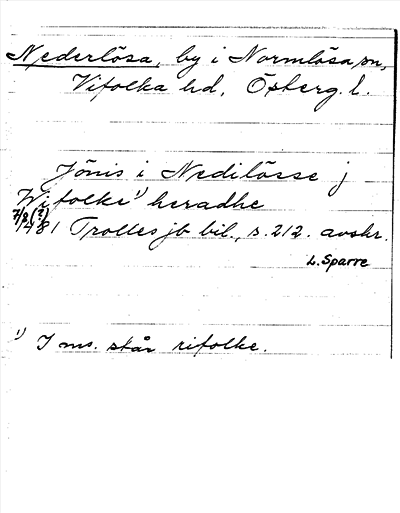 Nederlösa, by i Normlösa sn,
Vifolka hd, Österg. l.
Jönis i Nedilösse j
Wifolke¹⁾ heradhe
7/8(?) 1481 Trolles jb bil., s. 212. avskr.
L. Sparre
¹⁾ I ms. står rifolke.